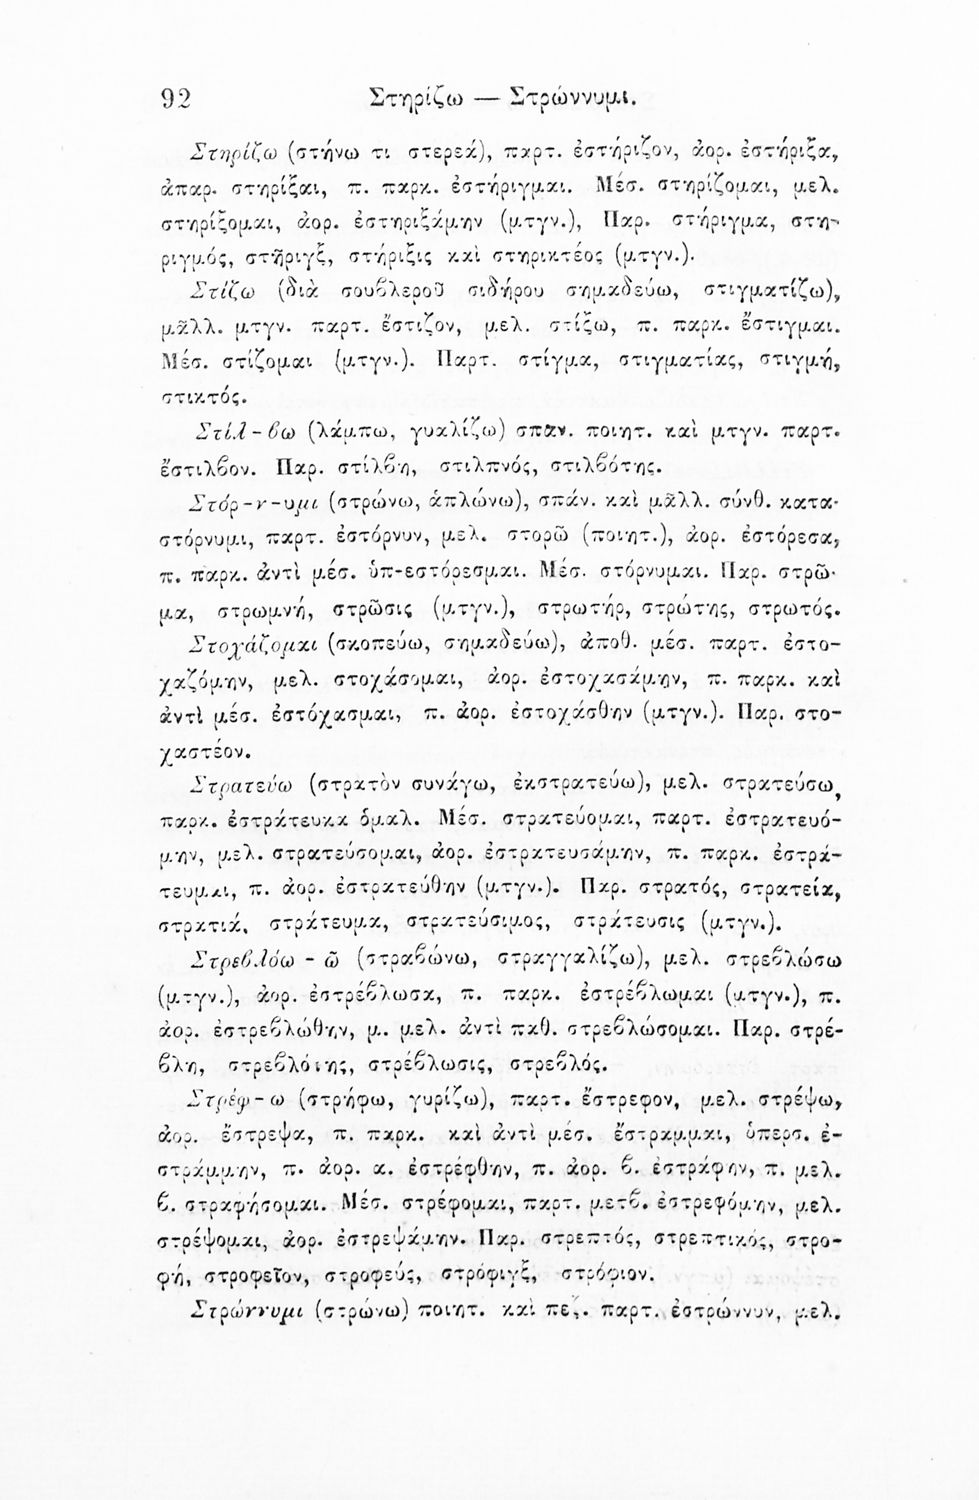 92 Στηρίζω — Στρώννυμι.
Στηρίζω (στήνω τι στερεά), παρτ. ἐστήριζον, ἀορ. ἐστήριξα,
ἀπαρ. στηρίξαι, π. παρκ. ἐστήριγμαι. Μέσ. στηρίζομαι, μελ.
στηρίξομαι, ἀορ. ἐστηριξάμην (μτγν.), Παρ. στήριγμα, στη-
ριγμός, στῆριγξ, στήριξις καὶ στηρικτέος (μτγν.).
Στίζω (διὰ σουβλεροῦ σιδήρου σημαδεύω, στιγματίζω),
μᾶλλ. μτγν. παρτ. ἔστιζον, μελ. στίξω, π. παρκ. ἔστιγμαι.
Μέσ. στίζομαι (μτγν.). Παρτ. στίγμα, στιγματίας, στιγμή,
στικτός.
Στίλ-βω (λάμπω, γυαλίζω) σπαν. ποιητ. καὶ μτγν. παρτ.
ἔστιλβον. Παρ. στίλβη, στιλπνός, στιλβότης.
Στόρ-ν-υμι (στρώνω, ἁπλώνω), σπάν. καὶ μᾶλλ. σύνθ. κατα-
στόρνυμι, παρτ. ἐστόρνυν, μελ. στορῶ (ποιητ.), ἀορ. ἐστόρεσα,
π. παρκ. ἀντὶ μέσ. ὑπ-εστόρεσμαι. Μέσ. στόρνυμαι. Παρ. στρῶ-
μα, στρωμνή, στρῶσις (μτγν.), στρωτήρ, στρώτης, στρωτός.
Στοχάζομαι (σκοπεύω, σημαδεύω), ἀποθ. μέσ. παρτ. ἐστο-
χαζόμην, μελ. στοχάσομαι, ἀορ. ἐστοχασάμην, π. παρκ. καὶ
ἀντὶ μέσ. ἐστόχασμαι, π. ἀορ. ἐστοχάσθην (μτγν.). Παρ. στο-
χαστέον.
Στρατεύω (στρατὸν συνάγω, ἐκστρατεύω), μελ. στρατεύσω,
παρκ. ἐστράτευκα ὁμαλ. Μέσ. στρατεύομαι, παρτ. ἐστρατευό-
μην, μελ. στρατεύσομαι, ἀορ. ἐστρατευσάμην, π. παρκ. ἐστρά-
τευμαι, π. ἀορ. ἐστρατεύθην (μτγν.). Παρ. στρατός, στρατεία,
στρατιά, στράτευμα, στρατεύσιμος, στράτευσις (μτγν.).
Στρεβλόω - ῶ (στραβώνω, στραγγαλίζω), μελ. στρεβλώσω
(μτγν.), ἀορ. ἐστρέβλωσα, π. παρκ. ἐστρέβλωμαι (μτγν.), π.
ἀορ. ἐστρεβλώθην, μ. μελ. ἀντὶ παθ. στρεβλώσομαι. Παρ. στρέ-
βλη, στρεβλότης, στρέβλωσις, στρεβλός.
Στρέφ-ω (στρήφω, γυρίζω), παρτ. ἔστρεφον, μελ. στρέψω,
ἀορ. ἔστρεψα, π. παρκ. καὶ ἀντὶ μέσ. ἔστραμμαι, ὑπερσ. ἐ-
στράμμην, π. ἀορ. α. ἐστρέφθην, π. ἀορ. β. ἐστράφην, π. μελ.
β. στραφήσομαι. Μέσ. στρέφομαι, παρτ. μετβ. ἐστρεφόμην, μελ.
στρέψομαι, ἀορ. ἐστρεψάμην. Παρ. στρεπτός, στρεπτικός, στρο-
φή, στροφεῖον, στροφεύς, στρόφιγξ, στρόφιον.
Στρώννυμι (στρώνω) ποιητ. καὶ πεζ. παρτ. ἐστρώννυν, μελ.